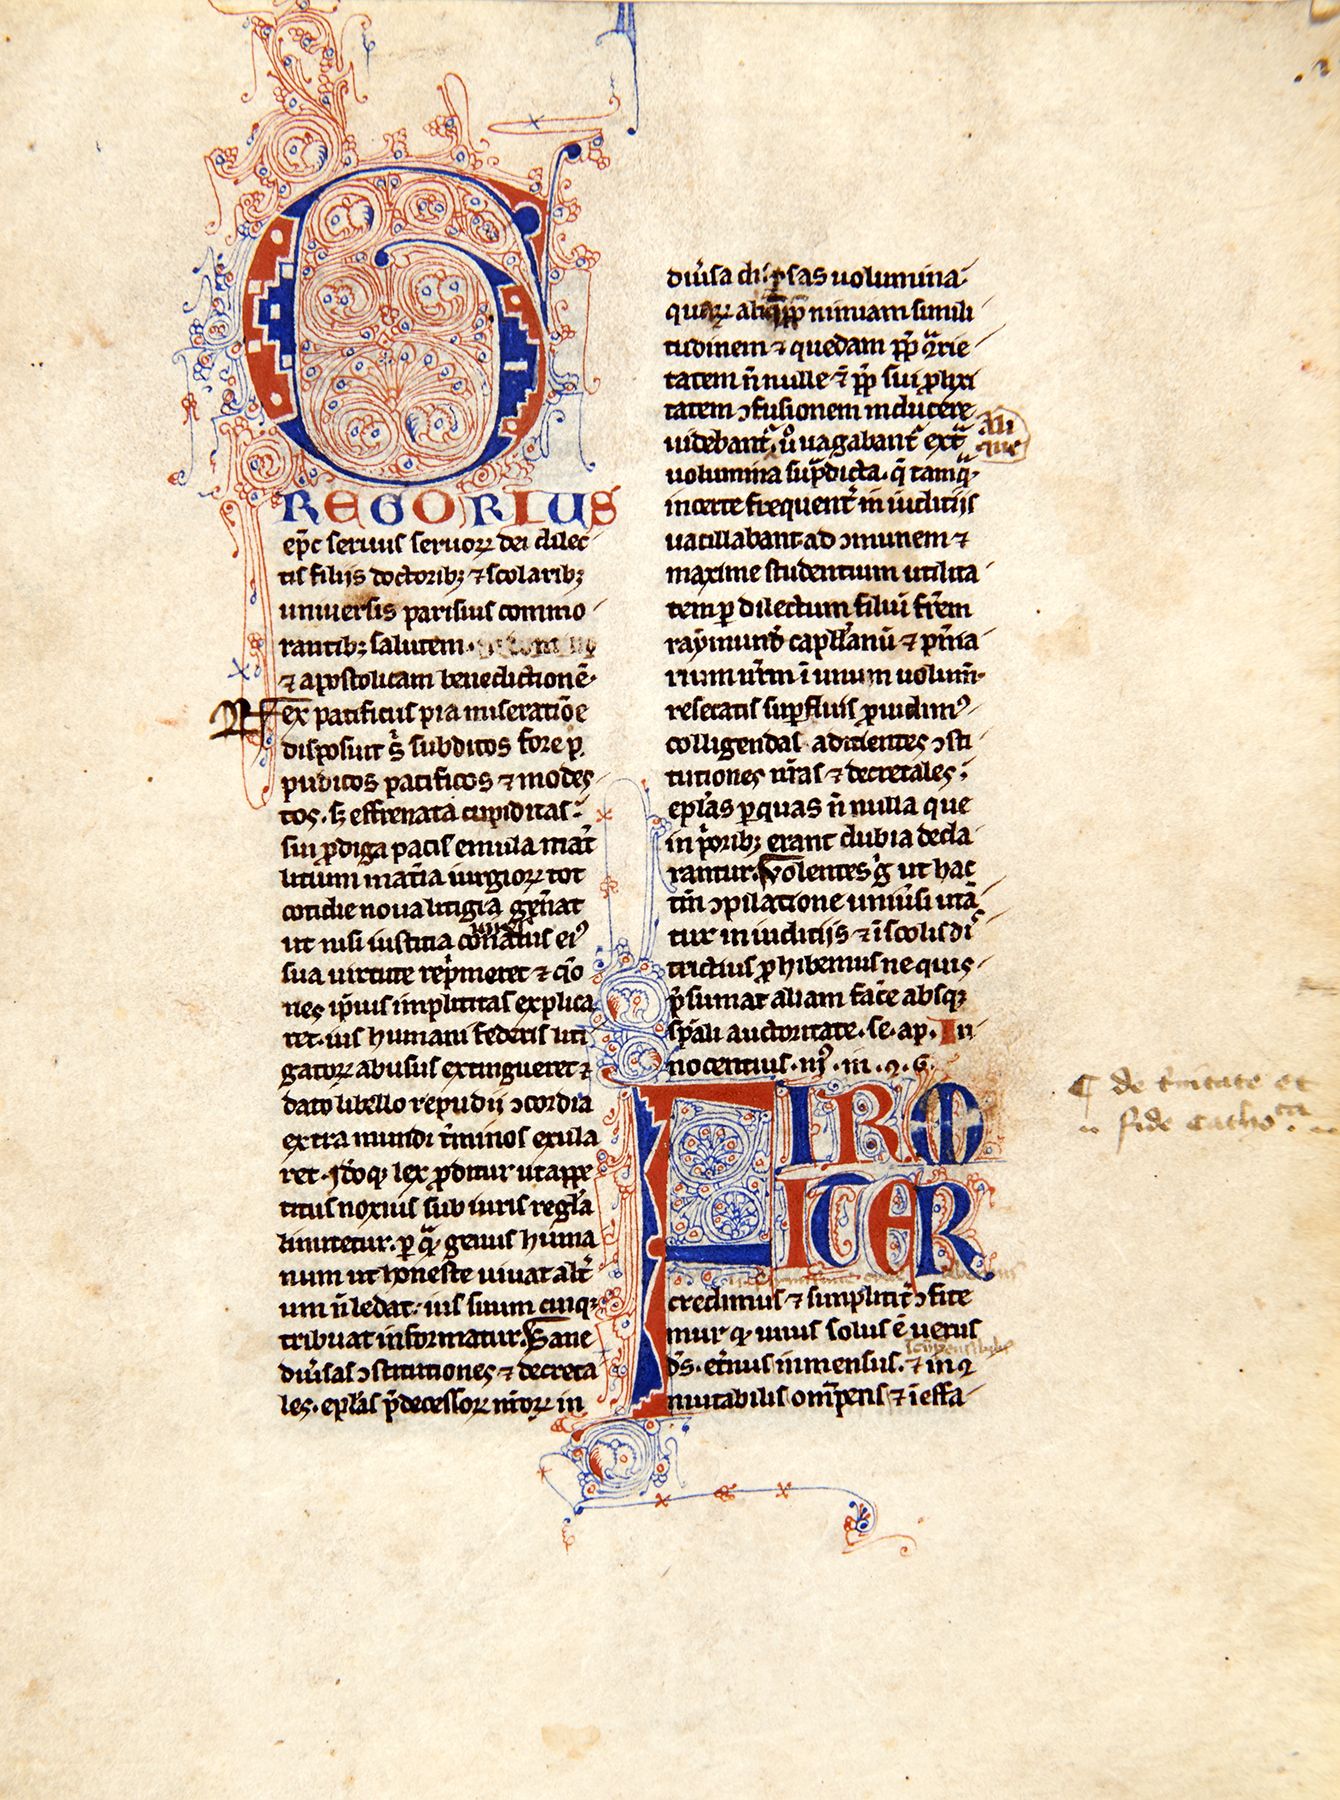 GREGORIUS
ep̄c seruus seruoꝝ dei dilec
tis filiis doctoribꝫ ⁊ scolaribꝫ
uniuersis parisius commo
rantibꝫ salutem.
⁊ apostolicam benedictionē.
Rex pacificus pia miseratiōe
disposuit s̄ subditos fore p
pudicos pacificos ⁊ modes
tos. sꝫ effrenata cupiditas
sui ꝓdiga pacis emula mat̄
litium mat̄ia iurgioꝝ tot
cotidie noua litigia gen̄at
ut nisi iusticia conatus eiꝰ
sua uirtute rep̄meret ⁊ q̄ō
nes ip̄ius implicitas explica
ret. ius humani federis liti
gatoꝝ abusus extingueret ⁊
dato libello repudii ↄcordia
extra mundi t̄minos exula
ret. Idoqꝫ lex ꝓditur ut appe
titus noxius sub iuris regl̄a
limitetur. ꝑ qᷓ genus huma
num ut honeste uiuat alt̄
um n̄ ledat. ius suum cuiqꝫ
tribuat informatur. Sane
diūsas ↄstitutiones ⁊ decreta
les. epl̄as p̄decessoꝝ nr̄oꝝ in
diūsa disꝑsas uolumina.
quaꝝ aliq̄ ꝓp̄ nimiam simili
tudinem ⁊ quedam ꝓp̄ ↄᷓrie
tatem n̄nulle ē ꝓp̄ sui ꝓlixi
tatem ↄfusionem inducere
uidebant᷑. u̾o uagabant᷑ ext̄
uolumina sup̄dicta. q̄ tamqᷓ
incerte frequent᷑ in iudiciis
uacillabant ad ↄmunem ⁊
maxime studentium utilita
tem ꝑ dilectum filiū fr̄em
raymund̄ capll̄anū ⁊ pn̄ia
rium nr̄m ī unum uolum̄
resecatis suꝑfluis ꝓuidimꝰ
colligendas adicientes ↄsti
tutiones nr̄as ⁊ decretales
epl̄as ꝑ quas n̄ nulla que
in p̄oribꝫ erant dubia decla
rantur. Volentes g̾ ut hac
tm̄ ↄpilatione uniu̾si utā
tur in iudiciis ⁊ ī scolis di
trictius ꝓhibemus ne quis
p̄sumat aliam fac̄e absqꝫ
sp̄ali auctoritate. se. ap. In
nocentius. iij̾. in. ↄ. G.
FIRMITER
credimus ⁊ simplicit̄ ↄfite
mur qꝫ unus solus ē uerus
d̄s. et̄nus inmensus. ⁊ inↄ
mutabilis om̄pens ⁊ īeffa
¶ de t̄nitate et
fide catho^ca.